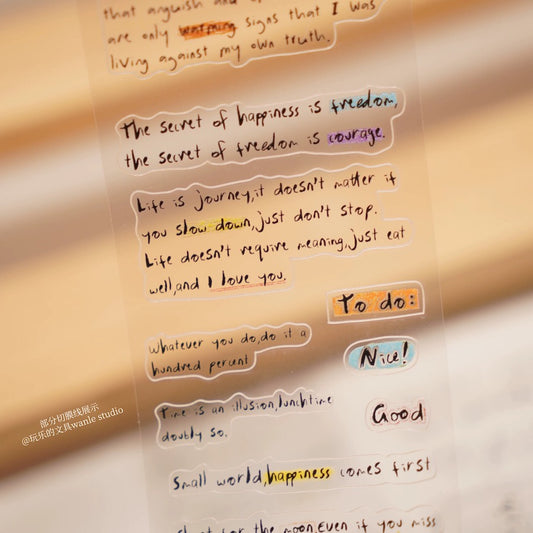 that anguish and
are only warning signs that I was
living against my own truth.
The secret of happiness is freedom,
the secret of freedom is courage.
Life is journey,it doesn't matter if
you slow down,just don't stop.
Life doesn't require meaning,just eat
well,and I love you.
To do:
Whatever you do,do it a
hundred percent
Nice!
Time is an illusion,lunchtime
doubly so.
Good
Small world,happiness comes first
Shoot for the moon.Even if you miss
部分切膜线展示
@玩乐的文具wanle studio